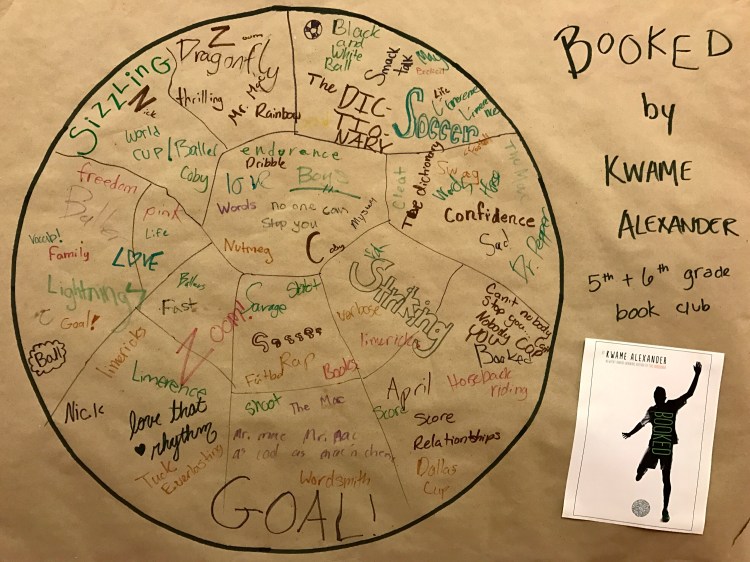 BOOKED
by
KWAME
ALEXANDER
5th + 6th grade
book club
KWAME ALEXANDER
BOOKED
SizzLing
Nick
World
cup
Baller
Coby
Zoom
Dragonfly
thrilling
Mr. Mac
Rainbow
Black
and
White
Ball
Smack
talk
The DIC-
TIO-
NARY
Soccer
Life
Limerence
endurance
Dribble
love
Boys
Words
no one can
stop you
Nutmeg
Coby
Cleat
The dictionary
Swag
Confidence
Sad
The Mac
Dr. Pepper
freedom
pink
Life
LOVE
Vocab!
Family
Lightning
Goal!
Ball
Ballers
Fast
ZOOM!
limericks
Limerence
Nick
love that
rhythm
Tuck
Everlasting
Garage
Shoot
Rap
Futbol
Books
Striking
Verbose
limericks
Can't nobody
Stop you
Nobody Cop
YOU
Booked
Horeback
riding
April
Score
Score
Relationships
Dallas
Cup
shoot
The Mac
Mr. mac Mr. Mac
Wordsmith
GOAL!